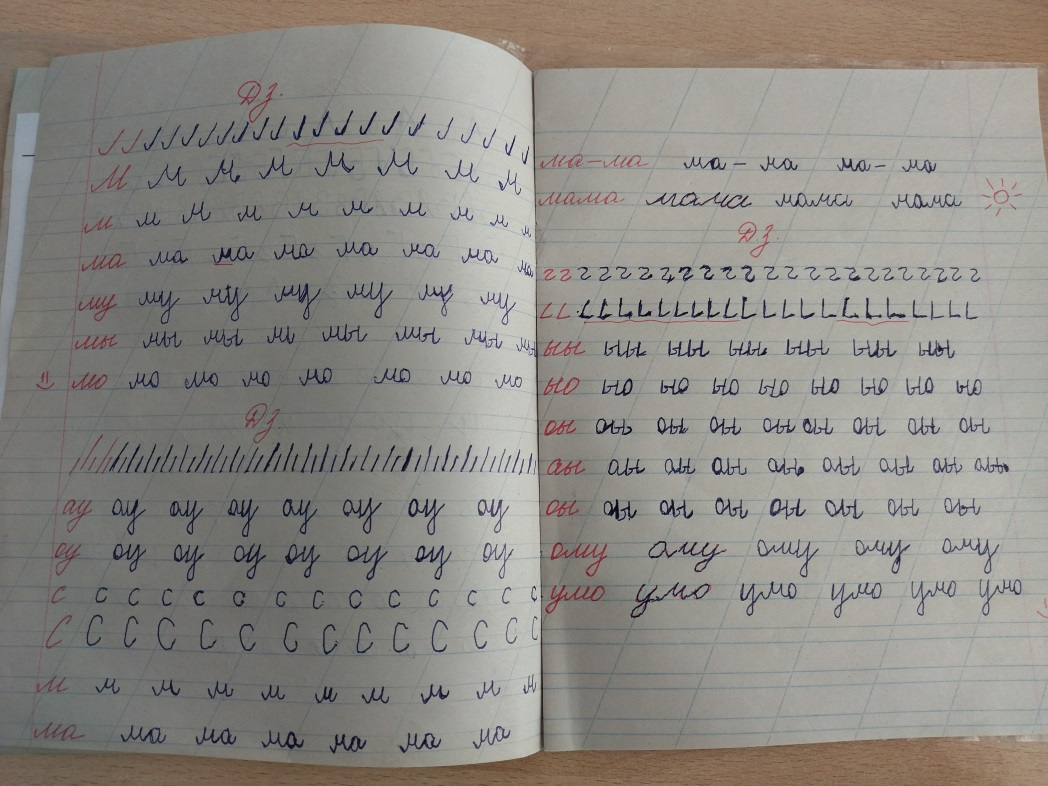 ДЗ.
М М М М М М М М
м м м м м м м м м м
ма ма ма ма ма ма ма ма
му му му му му му му
мы мы мы мы мы мы мы мы
мо мо мо мо мо мо мо мо
ДЗ.
ау ау ау ау ау ау ау ау
оу оу оу оу оу оу оу оу
с с с с с с с с с с с с с с
С С С С С С С С С С С С С С
м м м м м м м м м м
ма ма ма ма ма ма ма
ма-ма ма-ма ма-ма
мама мама мама мама
ДЗ.
ыы ыы ыы ыы ыы ыы ыы
ыо ыо ыо ыо ыо ыо ыо ыо ыо
оы оы оы оы оы оы оы оы оы
аы аы аы аы аы аы аы аы аы
оы оы оы оы оы оы оы оы
ому ому ому ому ому
умо умо умо умо умо умо